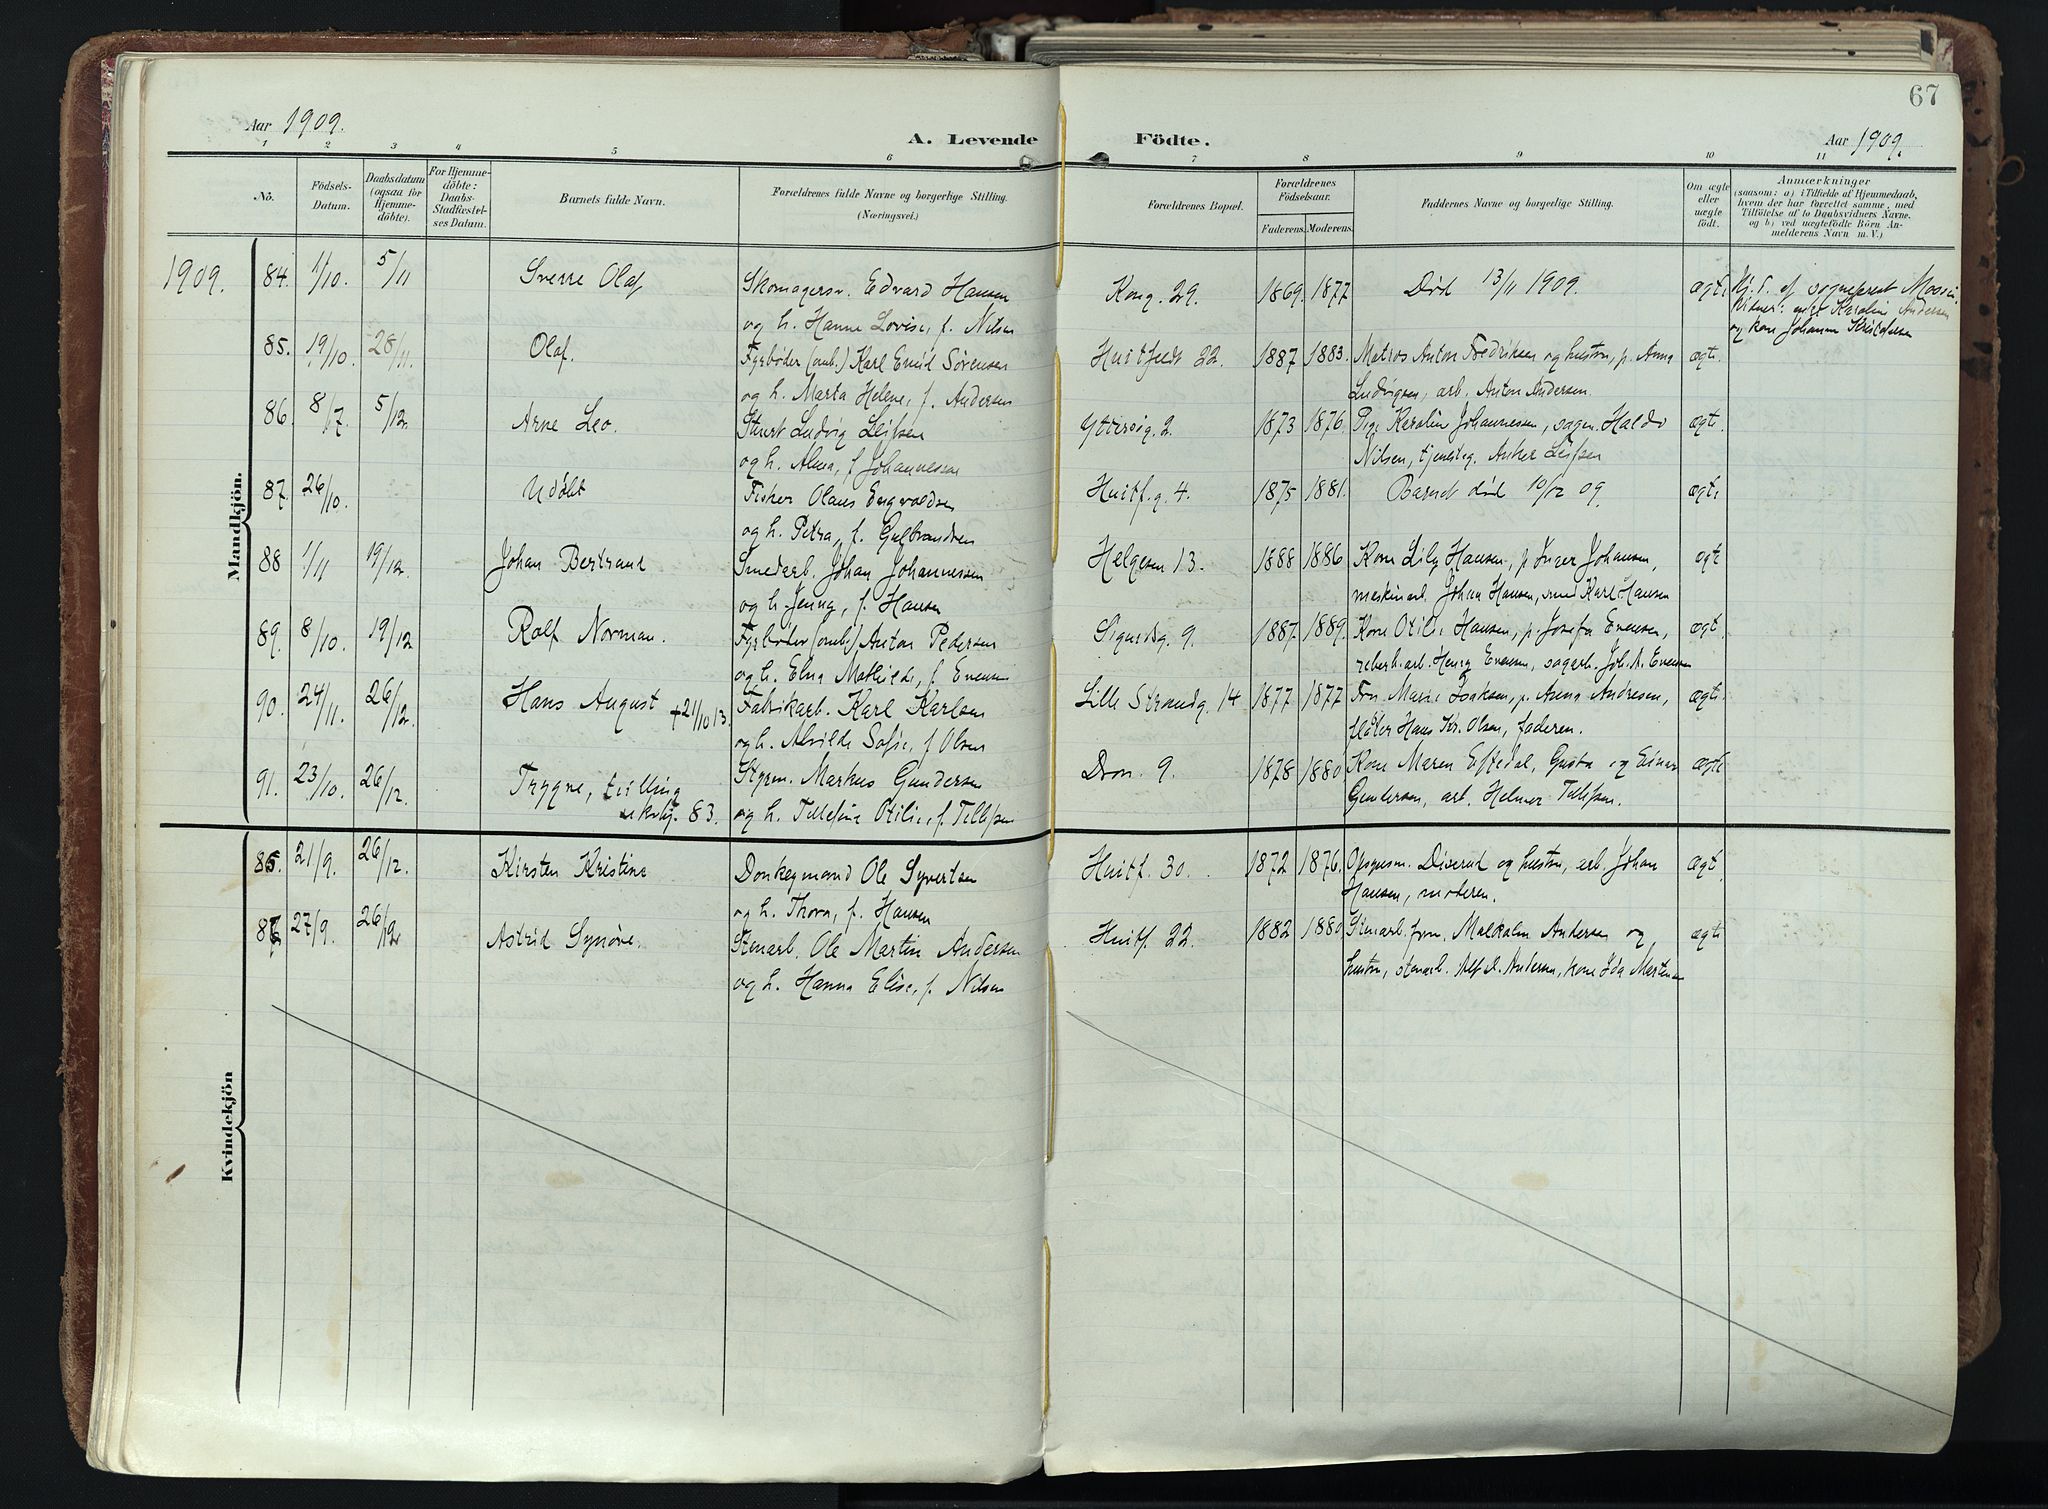 67
Aar 1909.
A. Levende Födte.
Aar 1909.
1 2 3 4 5 6 7 8 9 10 11
No.
Födsels-Datum.
Daabsdatum (ogsaa for Hjemme-döbte).
For Hjemme-döbte: Daabs-Stadfæstel-ses Datum.
Barnets fulde Navn.
Forældrenes fulde Navne og borgerlige Stilling. (Næringsvei.)
Forældrenes Bopæl.
Forældrenes Födselsaar.
Faderens. Moderens.
Faddernes Navne og borgerlige Stilling.
Om ægte eller uægte födt.
Anmærkninger
(saasom: a) i Tilfælde af Hjemmedaab,
hvem der har forrettet samme, med
Tilföielse af to Daabsvidners Navne,
og b) ved uægtefödte Börn An-
melderens Navn m. V.)
Mandkjön.
1909. 84. 1/10. 5/11 Sverre Olaf Skomagersv. Edvard Hansen Kong. 29. 1869. 1877 Død 13/11 1909. ægte Hj. d. af sogneprest
og h. Hanne Lovise, f. Nilsen Karoline Andersen
og kone Johanne
85. 19/10. 28/11. Olaf. Fyrbøder (omb.) Karl Emil Sørensen Huitfeldt 22. 1887 1883. Matros Anton Fredriksen og hustru, p. Anna ægte.
og h. Marta Helene, f. Andersen Ludvigsen, arb. Anton Andersen.
86. 8/7. 5/12. Arne Leo. Stuert Ludvig Leifsen 2. 1873 1876. Pige Karolin Johannessen, sagm. Haldo ægte
og h. Alma, f. Johannessen Nilsen, tjenesteg. Anker Leifsen
87. 26/10. Udøbt Fisker Olaus Engvaldsen Huitf. g. 4. 1875 1881. Barnet død 10/12 09 ægte
og h. Petra, f. Gulbrandsen
88 1/11 19/12. Johan Bertrand Smedarb. Johan Johannessen Helgesen 13. 1888 1886 Kone Lily Hansen, p. Inger Johansen, ægt
og h. Jenny, f. Hansen maskinarb. Johan Hansen, smed Karl Hansen
89. 8/10. 19/12 Rolf Norman. Fyrbøder (omb.) Anton Pedersen Sigurdsg. 9. 1887. 1889. Kone Otilie Hansen, p. Josefa Evensen, ægte
og h. Elna Mathilde, f. Evensen reberb.arb. Henry Evensen, sagarb. Joh. A. Evensen
90. 24/11. 26/12. Hans August +21/10 13. Fabrikarb. Karl Karlsen Lille Strandg. 14 1877 1877 Fru Marie Isaksen, p. Anna Andresen, ægte
og h. Alvilde Sofie, f. Olsen fløter Hans Kr. Olsen, faderen.
91. 23/10. 26/12. Trygve, tvilling Styrm. Markus Gundersen Dron. 9. 1878 1880 Kone Maren Eftedal, Gusta og Einar ægte
83. og h. Tellefine Otilie, f. Tellefsen Gundersen, arb. Helmer Tellefsen.
Kvindekjön
85. 21/9. 26/12. Kirsten Kristine Donkeymand Ole Syvertsen Huitf. 30. 1872 1876. Opsynsm. Diserud og hustru, arb. Johan ægt
og h. Thora, f. Hansen Hansen, moderen.
86. 27/9. 26/12 Astrid Synøve. Stenarb. Ole Martin Andersen Huitf. 22. 1882 1880 Stenarb.form. Malkolm Andersen og ægte
og h. Hanna Elise, f. Nilsen hustru, stenarb. Alf A. Andersen, kone Ida Martinsen